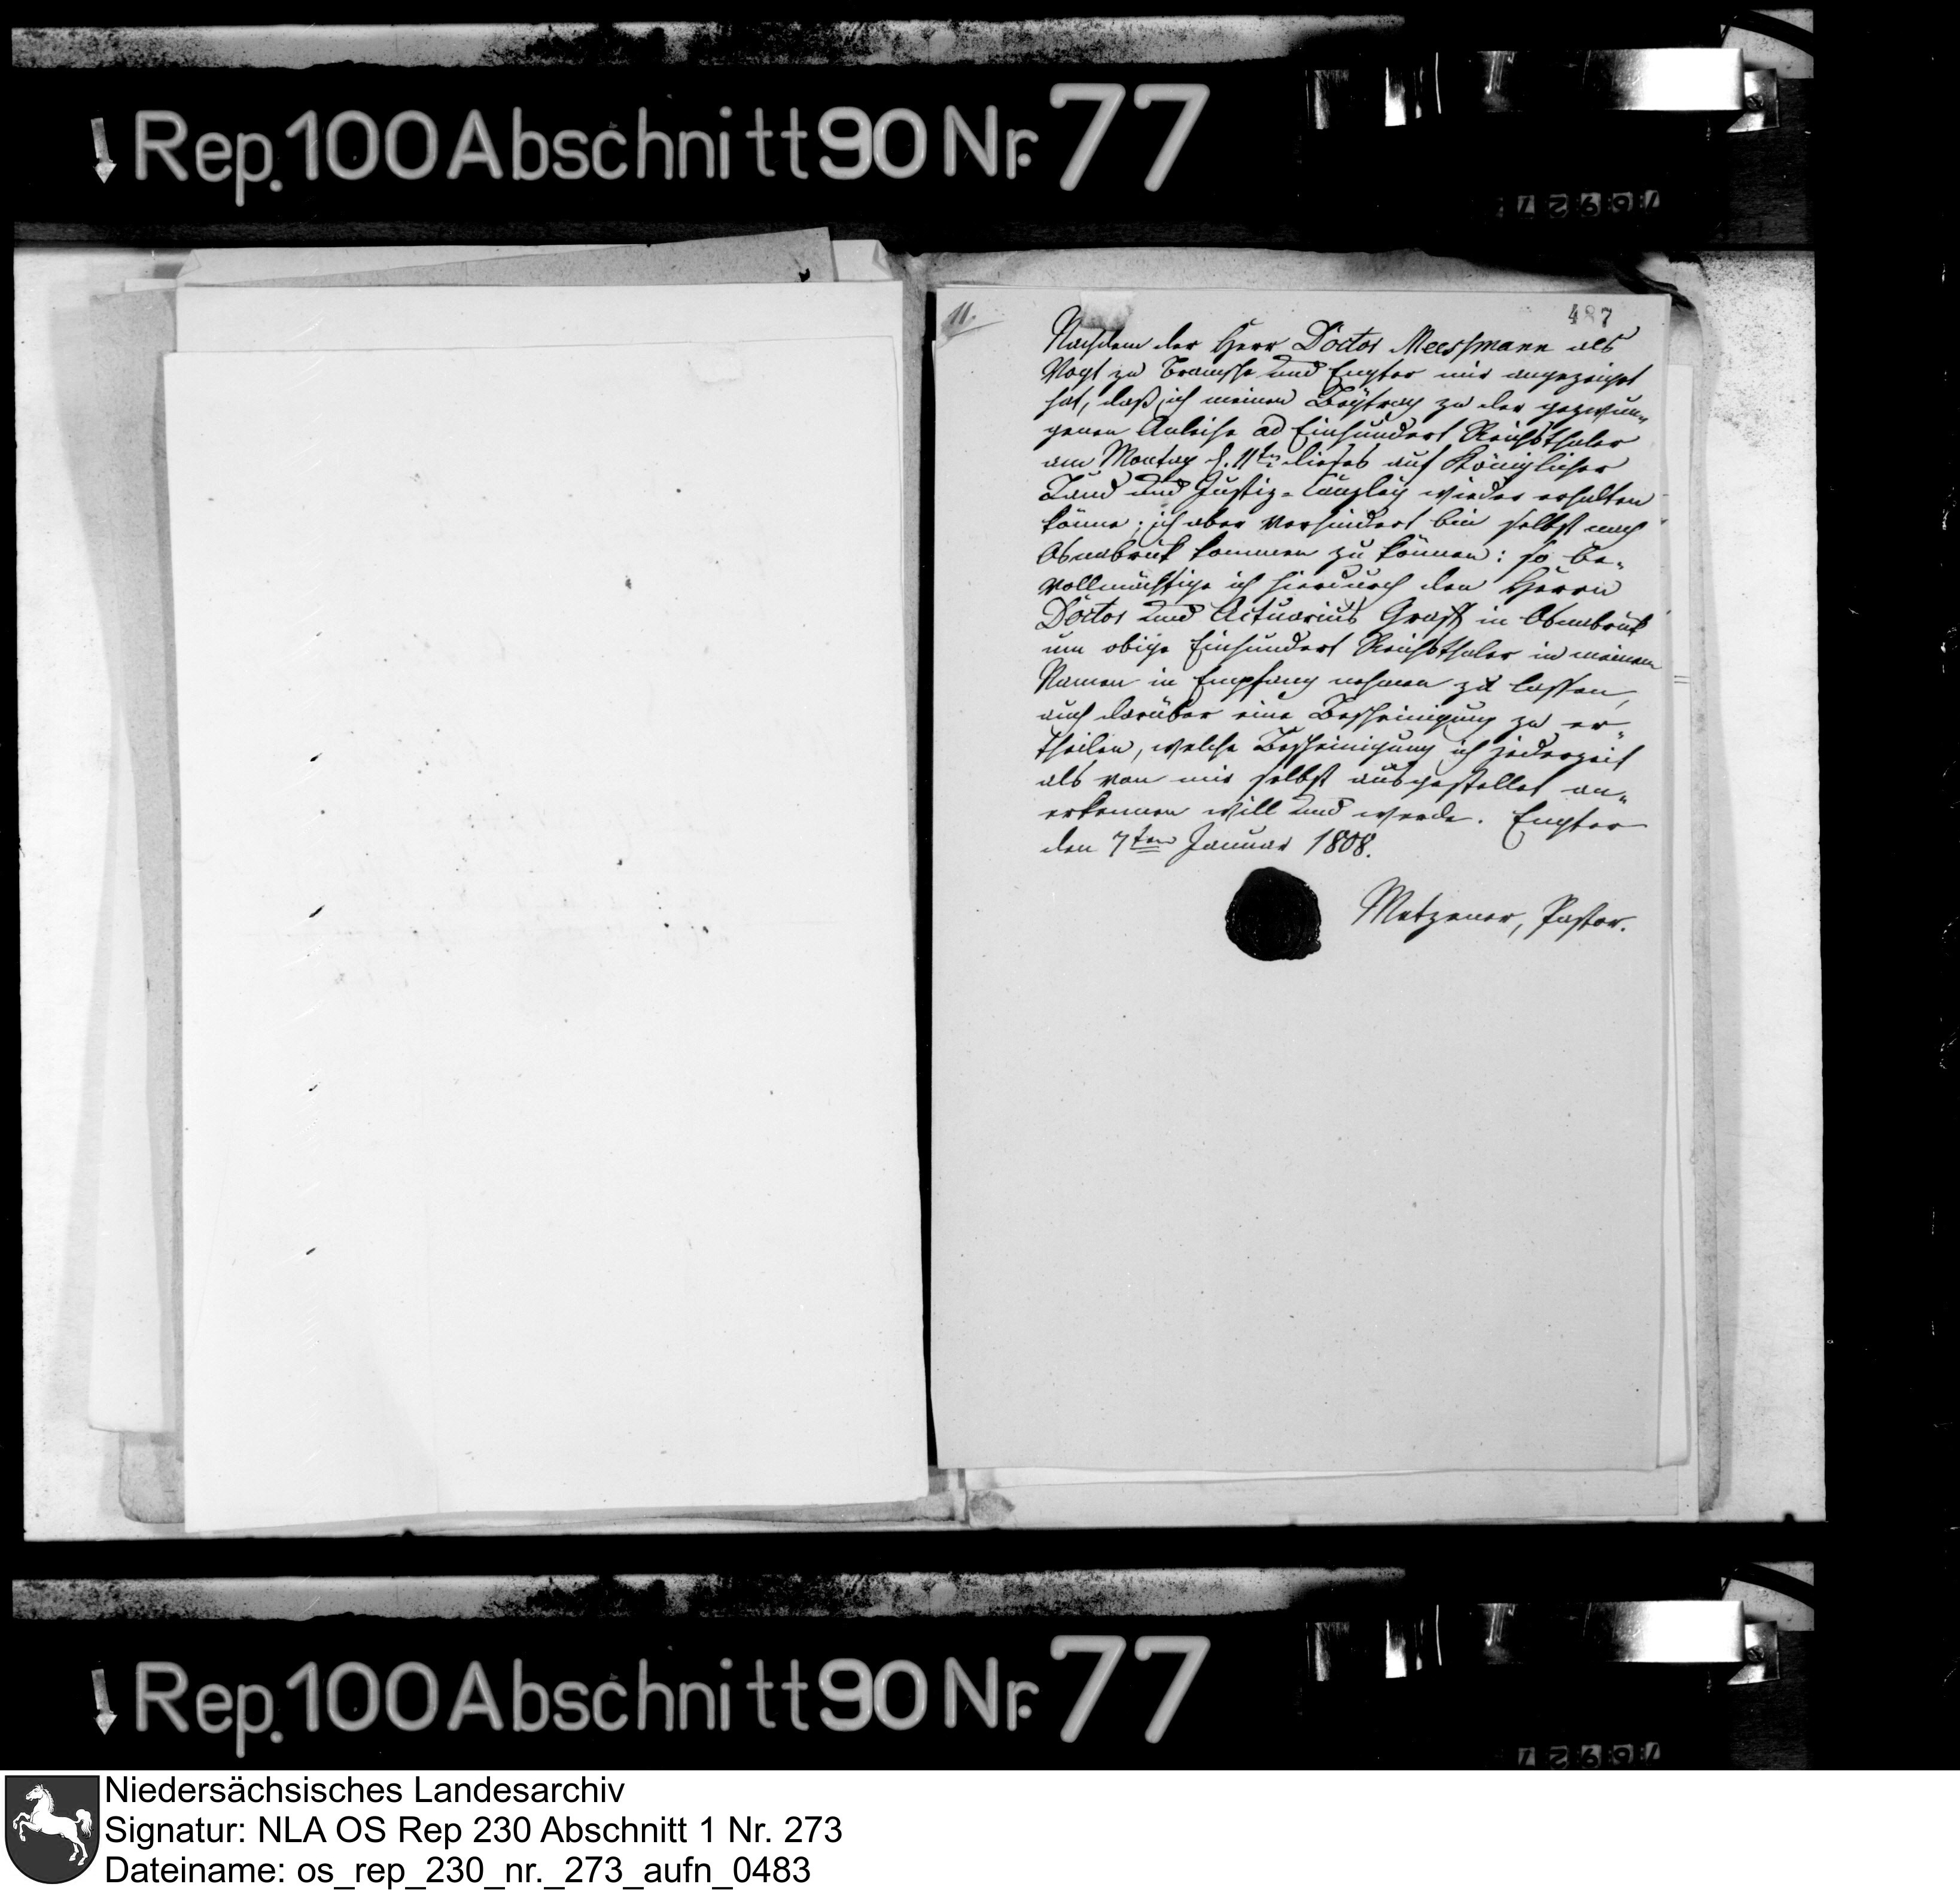 Rep. 100 Abschnitt 90 Nr. 77
11.
487
Nachdem der Herr Doctor Meessmann als
Vogt zu Bramsche und Engter mir angezeigt
hat, daß ich meinen Beÿtrag zu der gezwun„
genen Anleihe ad Einhundert Reichsthaler
am Montag d. 11ten dieses auf Königlicher
Land und Justiz-Canzleÿ wieder erhalten
könne; ich aber verhindert bin selbst nach
Osnabrück kommen zu können: so be„
vollmächtige ich hierdurch den Herrn
Doctor und Actuarius Gruss in Osnabrück
um obige Einhundert Reichsthaler in meinem
Namen in Empfang nehmen zu lassen,
auch darüber eine Bescheinigung zu er„
theilen, welche Bescheinigung ich jederzeit
als von mir selbst ausgestellet an„
erkennen will und werde. Engter
den 7ten Januar 1808.
Metzener, Pastor.
Rep. 100 Abschnitt 90 Nr. 77
Niedersächsisches Landesarchiv
Signatur: NLA OS Rep 230 Abschnitt 1 Nr. 273
Dateiname: os_rep_230_nr._273_aufn_0483